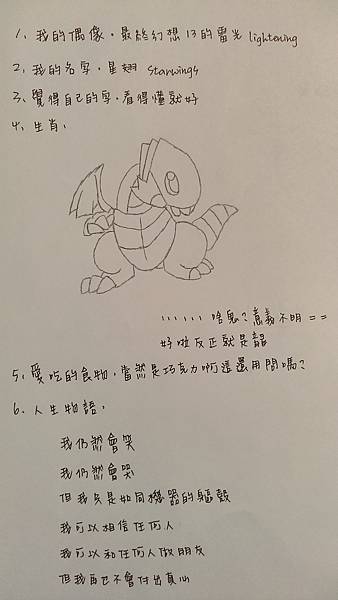 1、我的偶像，最終幻想13的雷光 lightening
2、我的名字，星翅 starwings
3、覺得自己的字，看得懂就好
4、生肖，
、、、、、、啥鬼？意義不明 = =
好啦反正就是龍
5、愛吃的食物，當然是巧克力啊這還用問嗎？
6、人生物語，
我仍然會笑
我仍然會哭
但我只是如同機器的軀殼
我可以相信任何人
我可以和任何人做朋友
但我再也不會付出真心